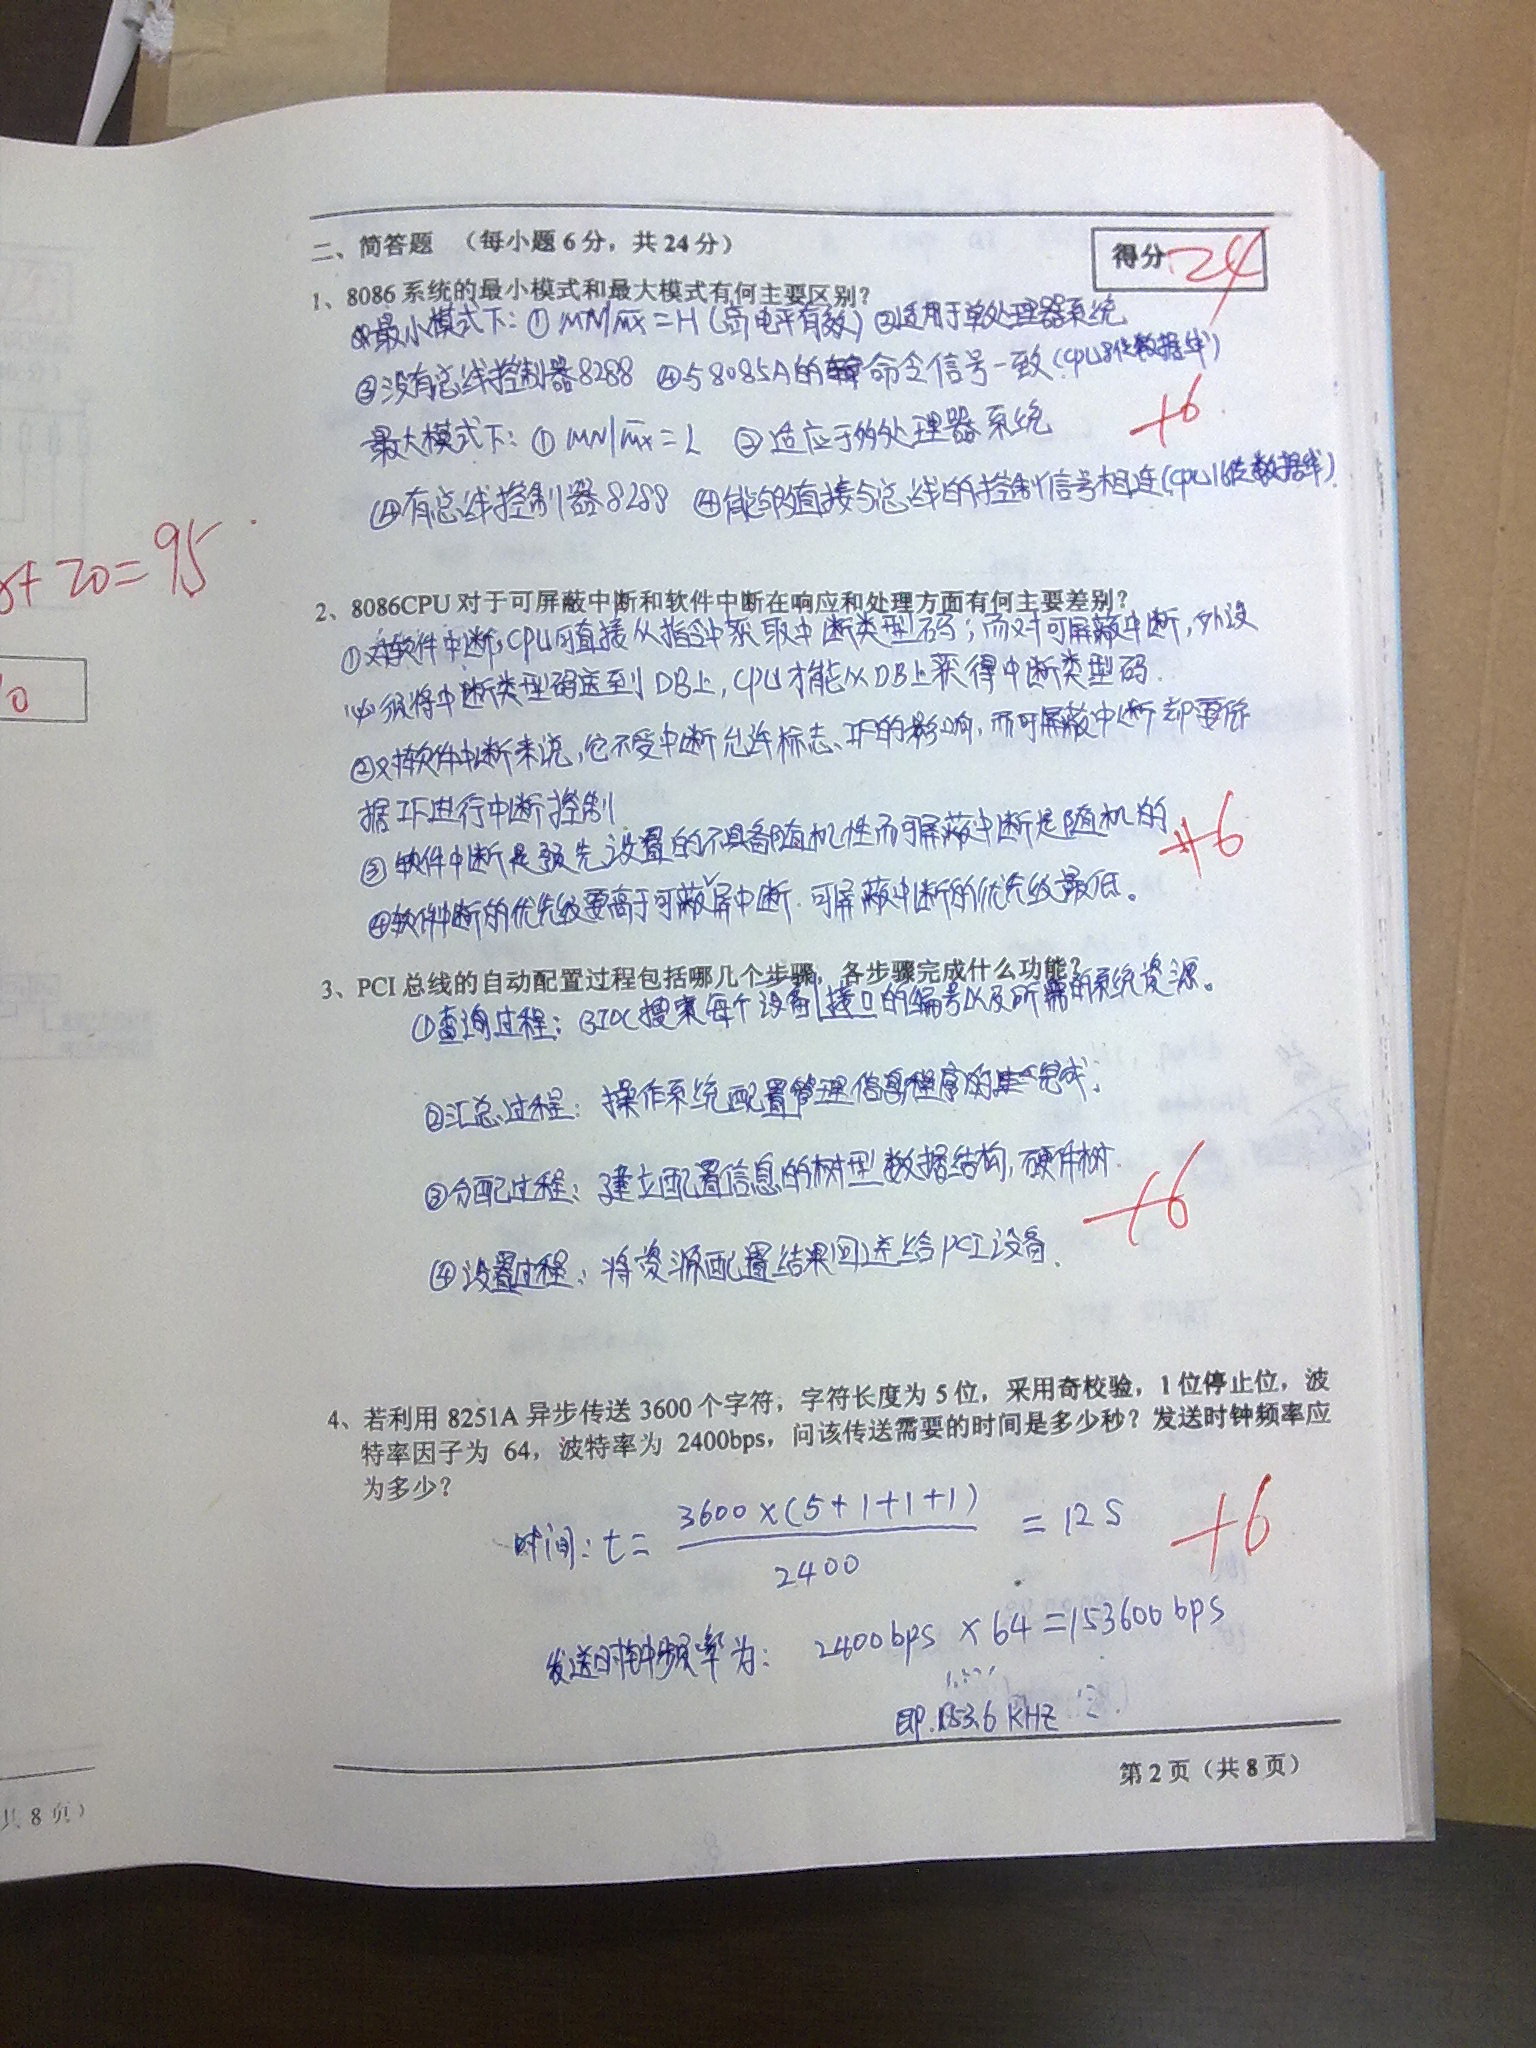 二、简答题 （每小题6分，共24分）
得分 24
1、8086系统的最小模式和最大模式有何主要区别？
最小模式下：① MN/M̅X̅=H（高电平有效）②适用于单处理器系统
③没有总线控制器8288 ④与8085A的命令信号一致（CPU8位数据线）
+6
最大模式下：① MN/M̅X̅=L ②适应于多处理器系统
有总线控制器8288 ④能够直接与总线的控制信号相连（CPU16位数据线）.
+ 20=95
2、8086CPU对于可屏蔽中断和软件中断在响应和处理方面有何主要差别？
①对软件中断，CPU可直接从指令中获取中断类型码；而对可屏蔽中断，外设
必须将中断类型码送到DB上，CPU才能从DB上获得中断类型码.
②对软件中断来说，它不受中断允许标志、IF的影响，而可屏蔽中断却要依
据IF进行中断控制
③软件中断是预先设置的不具备随机性而可屏蔽中断是随机的
+6
④软件中断的优先级要高于可蔽屏中断.可屏蔽中断的优先级最低。
3、PCI总线的自动配置过程包括哪几个步骤，各步骤完成什么功能？
①查询过程：搜索每个设备接口的编号以及所需的系统资源。
②汇总过程：操作系统配置管理信息程序的完成.
③分配过程：建立配置信息的树型数据结构，硬件树.
+6
④设置过程：将资源配置结果回送给PCI设备.
4、若利用8251A异步传送3600个字符，字符长度为5位，采用奇校验，1位停止位，波
特率因子为 64，波特率为 2400bps，问该传送需要的时间是多少秒？发送时钟频率应
为多少？
时间：t= 3600×(5+1+1+1) = 12 S
2400
+6
发送时钟频率为： 2400bps × 64 =153600bps
即.153.6 KHZ
第2页（共8页）
共 8 页）